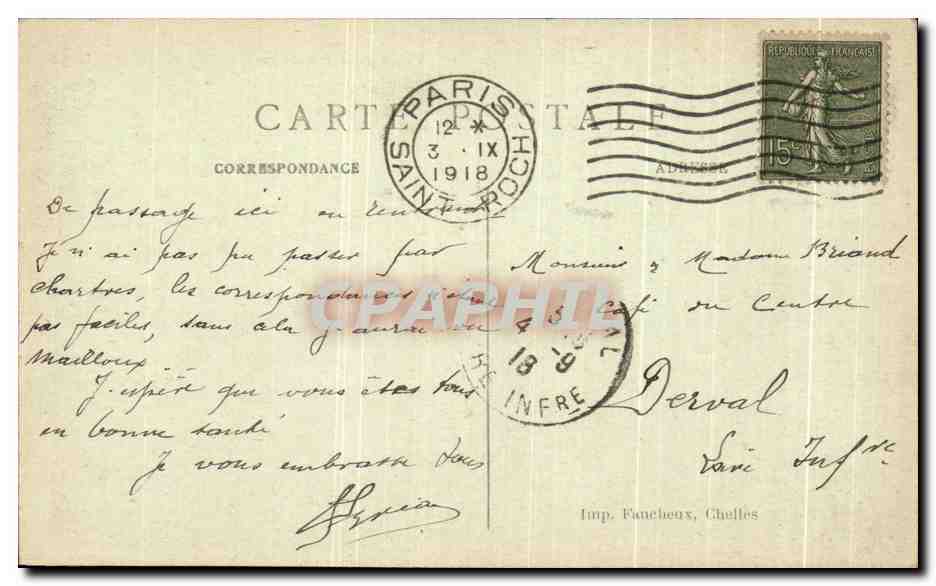 RÉPUBLIQUE FRANÇAISE
15c
CARTE POSTALE
PARIS
12 *
3 . IX
1918
SAINT ROCH
CORRESPONDANCE
ADRESSE
De passage ici en rentrant
Je n'ai pas pu passer par
chartres, les correspondances n'étant
pas faciles, sans cela j'aurai vu
Mailloux.
J'espère que vous êtes tous
en bonne santé
Je vous embrasse tous
Monsieur & Madame Briand
Café du Centre
Derval
Loire Infre
CPAPHIL
4 3
18 9
INFRE
Imp. Faucheux, Chelles